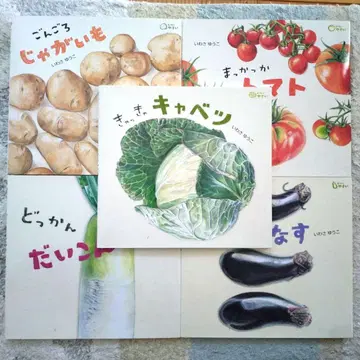 ごんごろ
じゃがいも
いわさ ゆうこ
まっかっか
トマト
いわさ ゆうこ
きゅっきゅ
キャベツ
いわさ ゆうこ
どっかん
だいこん
なす
いわさ ゆうこ